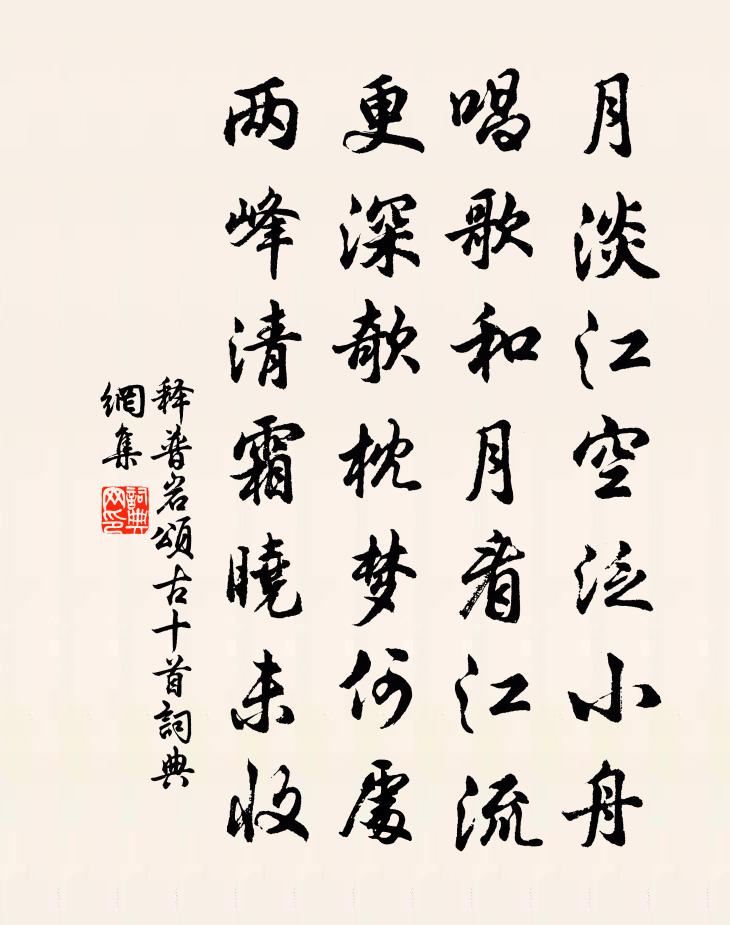 月淡江空泛小舟
唱歌和月看江流
更深欹枕梦何處
两峰清霜曉未收
释普岩頌古十首詞典
網集
詞典网印